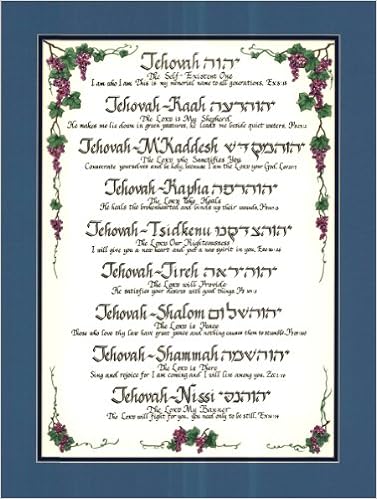 Jehovah יהוה
The Self-Existent One
I am who I Am. This is my memorial name to all generations. Ex 3:15
Jehovah-Raah יהוה רעה
The Lord is My Shepherd
He makes me lie down in green pastures, he leads me beside quiet waters.
Jehovah-M'Kaddesh יהוה מקדש
The Lord who Sanctifies You
Consecrate yourselves and be holy, because I am the Lord your God.
Jehovah-Rapha יהוה רפה
The Lord who Heals
He heals the brokenhearted and binds up their wounds.
Jehovah-Tsidkenu יהוה צדקנו
The Lord Our Righteousness
I will give you a new heart and put a new spirit in you.
Jehovah-Jireh יהוה יראה
The Lord will Provide
He satisfies your desires with good things.
Jehovah-Shalom יהוה שלום
The Lord is Peace
Those who love thy law have great peace and nothing causes them to stumble.
Jehovah-Shammah יהוה שמה
The Lord is There
Sing and rejoice for I am coming and I will live among you.
Jehovah-Nissi יהוה נסי
The Lord My Banner
The Lord will fight for you, you need only to be still. Ex 14:14